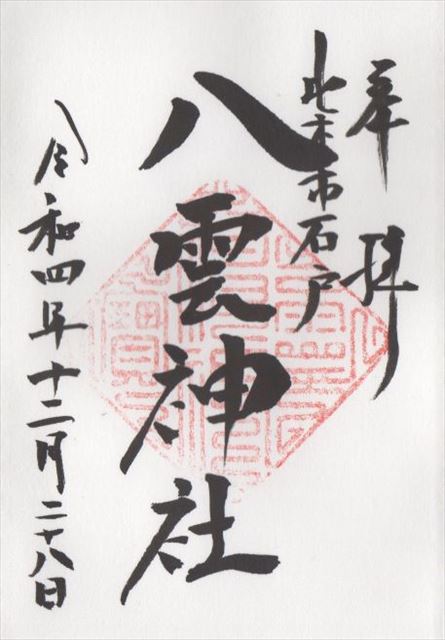 奉拝
北本市石戸
八雲神社
令和四年十二月二十八日